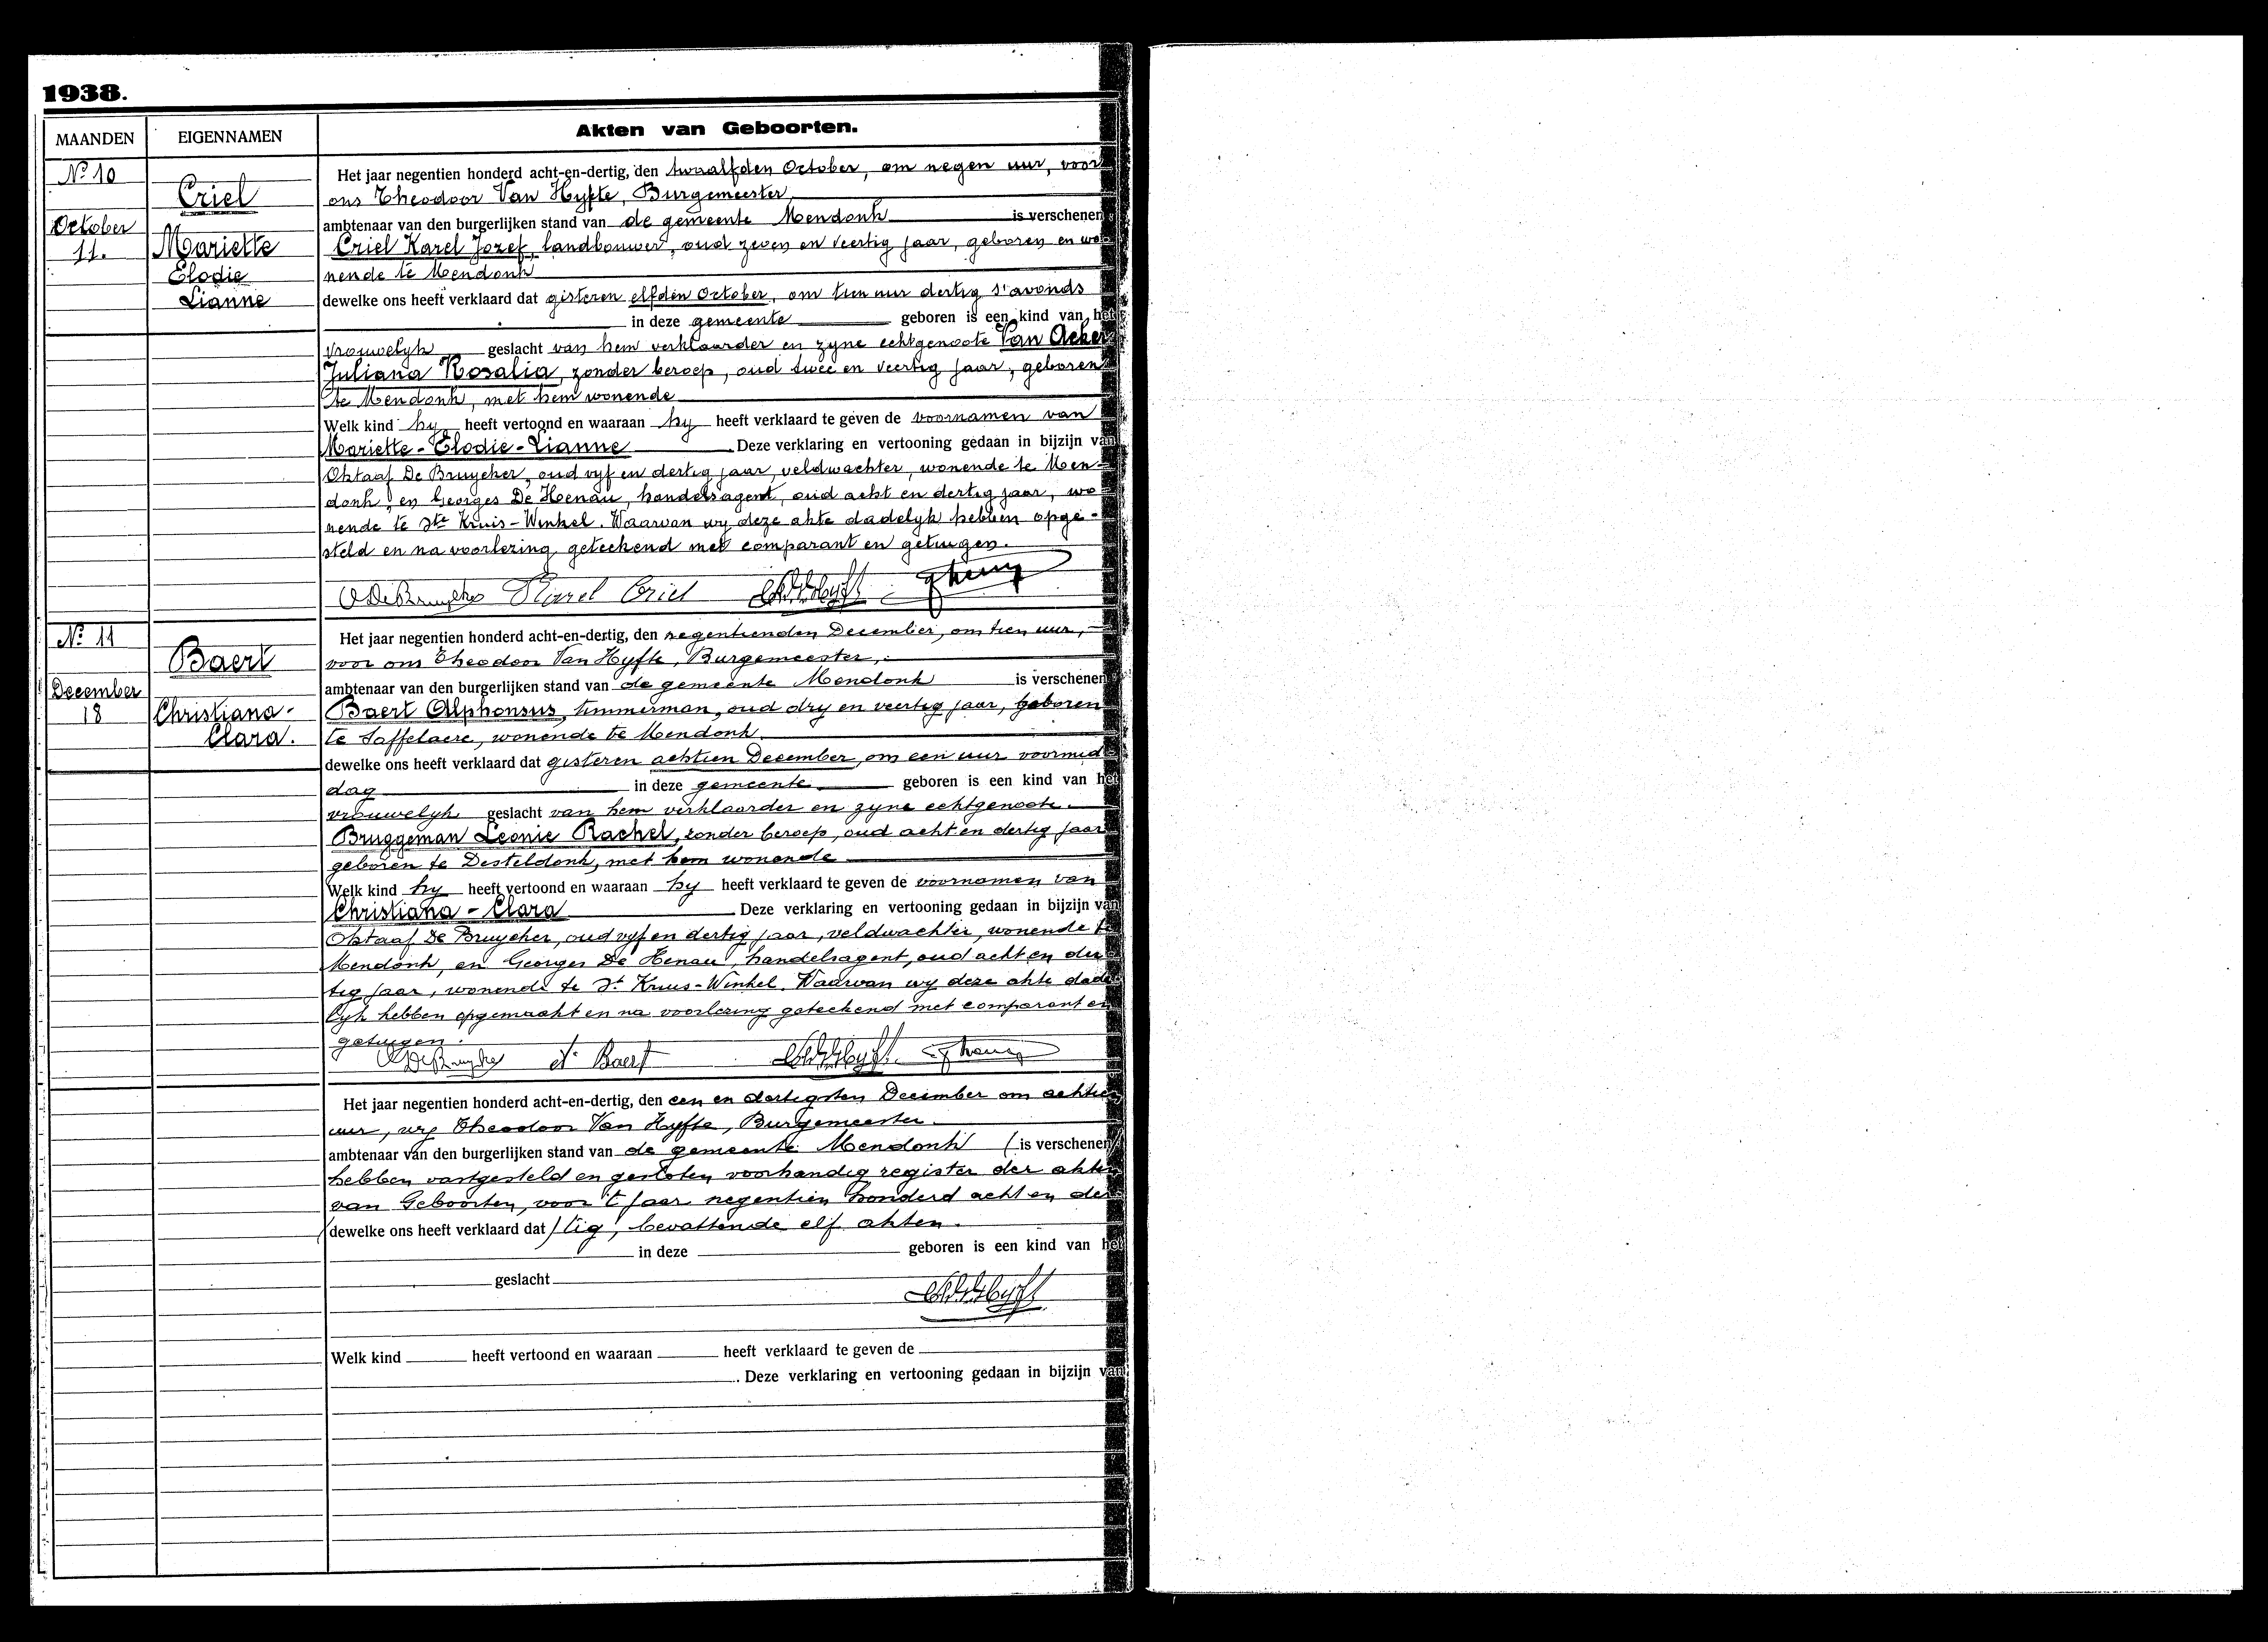 1938.
MAANDEN EIGENNAMEN Akten van Geboorten.
No 10
Criel
October
11.
Mariette
Elodie
Lianne
Het jaar negentien honderd acht-en-dertig, den twaalfden October, om negen uur, voor
ons Theodoor Van Hyfte, Burgemeester
ambtenaar van den burgerlijken stand van de gemeente Mendonk is verschenen
Criel Karel Jozef, landbouwer, oud zeven en veertig jaar, geboren en wo-
nende te Mendonk
dewelke ons heeft verklaard dat gisteren elfden October, om tien uur dertig s'avonds
in deze gemeente geboren is een kind van het
vrouwelyk geslacht van hem verklaarder en zyne echtgenoote Van Acker
Juliana Rosalia, zonder beroep, oud twee en veertig jaar, geboren
te Mendonk, met hem wonende
Welk kind hy heeft vertoond en waaraan hy heeft verklaard te geven de voornamen van
Mariette-Elodie-Lianne Deze verklaring en vertooning gedaan in bijzijn van
Oktaaf De Bruycker, oud vyf en dertig jaar, veldwachter, wonende te Men-
donk, en Georges De Henau, handelsagent, oud acht en dertig jaar, wo-
nende te Ste Kruis-Winkel. Waarvan wy deze akte dadelyk hebben opge-
steld en na voorlezing geteekend met comparant en getuigen.
O De Bruycker Karel Criel
No 11
Baert
December
18
Christiana-
Clara.
Het jaar negentien honderd acht-en-dertig, den negentienden December, om tien uur,
voor ons Theodoor Van Hyfte, Burgemeester,
ambtenaar van den burgerlijken stand van de gemeente Mendonk is verschenen
Baert Alphonsus, timmerman, oud dry en veertig jaar, geboren
te Saffelaere, wonende te Mendonk
dewelke ons heeft verklaard dat gisteren achtien December, om een uur voormid-
dag in deze gemeente geboren is een kind van het
vrouwelyk geslacht van hem verklaarder en zyne echtgenoote
Bruggeman Leonie Rachel, zonder beroep, oud acht en dertig jaar
geboren te Desteldonk, met hem wonende
Welk kind hy heeft vertoond en waaraan hy heeft verklaard te geven de voornamen van
Christiana-Clara Deze verklaring en vertooning gedaan in bijzijn van
Oktaaf De Bruycker, oud vyf en dertig jaar, veldwachter, wonende te
Mendonk, en Georges De Henau, handelsagent, oud acht en der-
tig jaar, wonende te St Kruis-Winkel. Waarvan wy deze akte dade-
lyk hebben opgemaakt en na voorlezing geteekend met comparant en
getuigen.
O De Bruycker A. Baert
Het jaar negentien honderd acht-en-dertig, den een en dertigsten December om achtien
uur, wy Theodoor Van Hyfte, Burgemeester
ambtenaar van den burgerlijken stand van de gemeente Mendonk (is verschenen)
hebben vastgesteld en gesloten voorhandig register der akten
van Geboorten, voor 't jaar negentien honderd acht en der-
(dewelke ons heeft verklaard dat) tig, bevattende elf akten.
in deze geboren is een kind van het
geslacht
Welk kind heeft vertoond en waaraan heeft verklaard te geven de
Deze verklaring en vertooning gedaan in bijzijn van